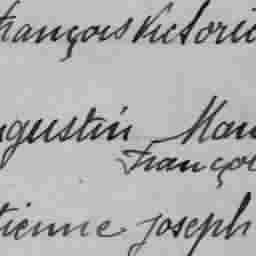 françois Victorie
ugustin Mau
françoi
tienne joseph